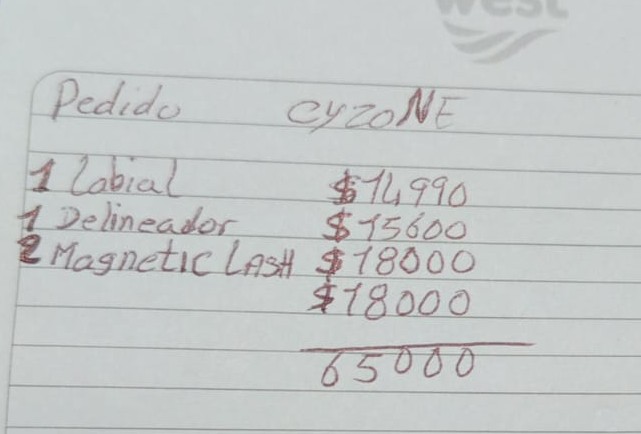 west
Pedido CYZONE
1 Labial $14990
1 Delineador $15600
2 Magnetic LASH $18000
$18000
65000